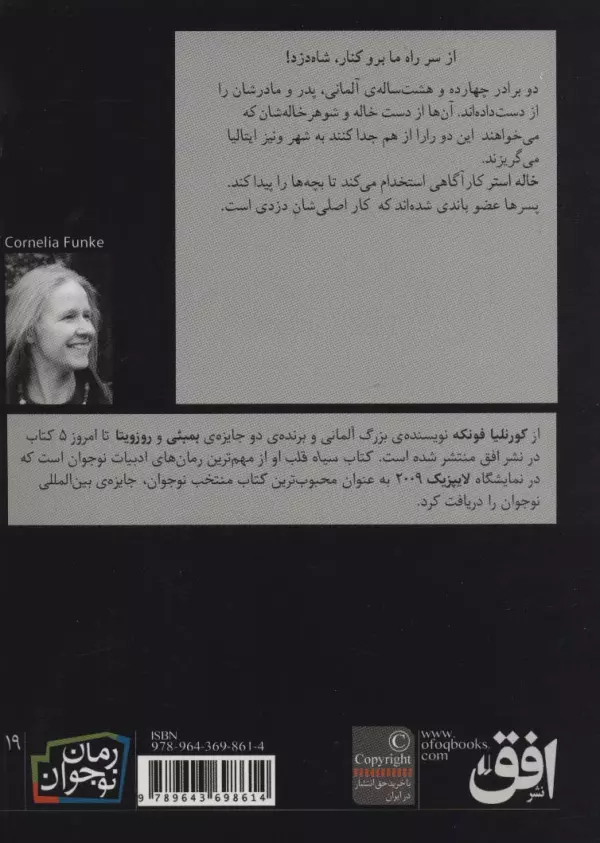 از سر راه ما برو کنار، شاه‌دزد!
دو برادر چهارده و هشت‌ساله‌ی آلمانی، پدر و مادرشان را
از دست‌داده‌اند. آن‌ها از دست خاله و شوهرخاله‌شان که
می‌خواهند این دو رارا از هم جدا کنند به شهر ونیز ایتالیا
می‌گریزند.
خاله استر کارآگاهی استخدام می‌کند تا بچه‌ها را پیدا کند.
پسرها عضو باندی شده‌اند که کار اصلی‌شان دزدی است.
Cornelia Funke
از کورنلیا فونکه نویسنده‌ی بزرگ آلمانی و برنده‌ی دو جایزه‌ی بمبئی و روزویتا تا امروز ۵ کتاب
در نشر افق منتشر شده است. کتاب سیاه قلب او از مهم‌ترین رمان‌های ادبیات نوجوان است که
در نمایشگاه لایپزیک ۲۰۰۹ به عنوان محبوب‌ترین کتاب منتخب نوجوان، جایزه‌ی بین‌المللی
نوجوان را دریافت کرد.
۱۹
رمان
نوجوان
ISBN
978-964-369-861-4
9 789643 698614
©
Copyright
با خرید حق انتشار
در ایران
www.
ofoqbooks.
com
نشر افق